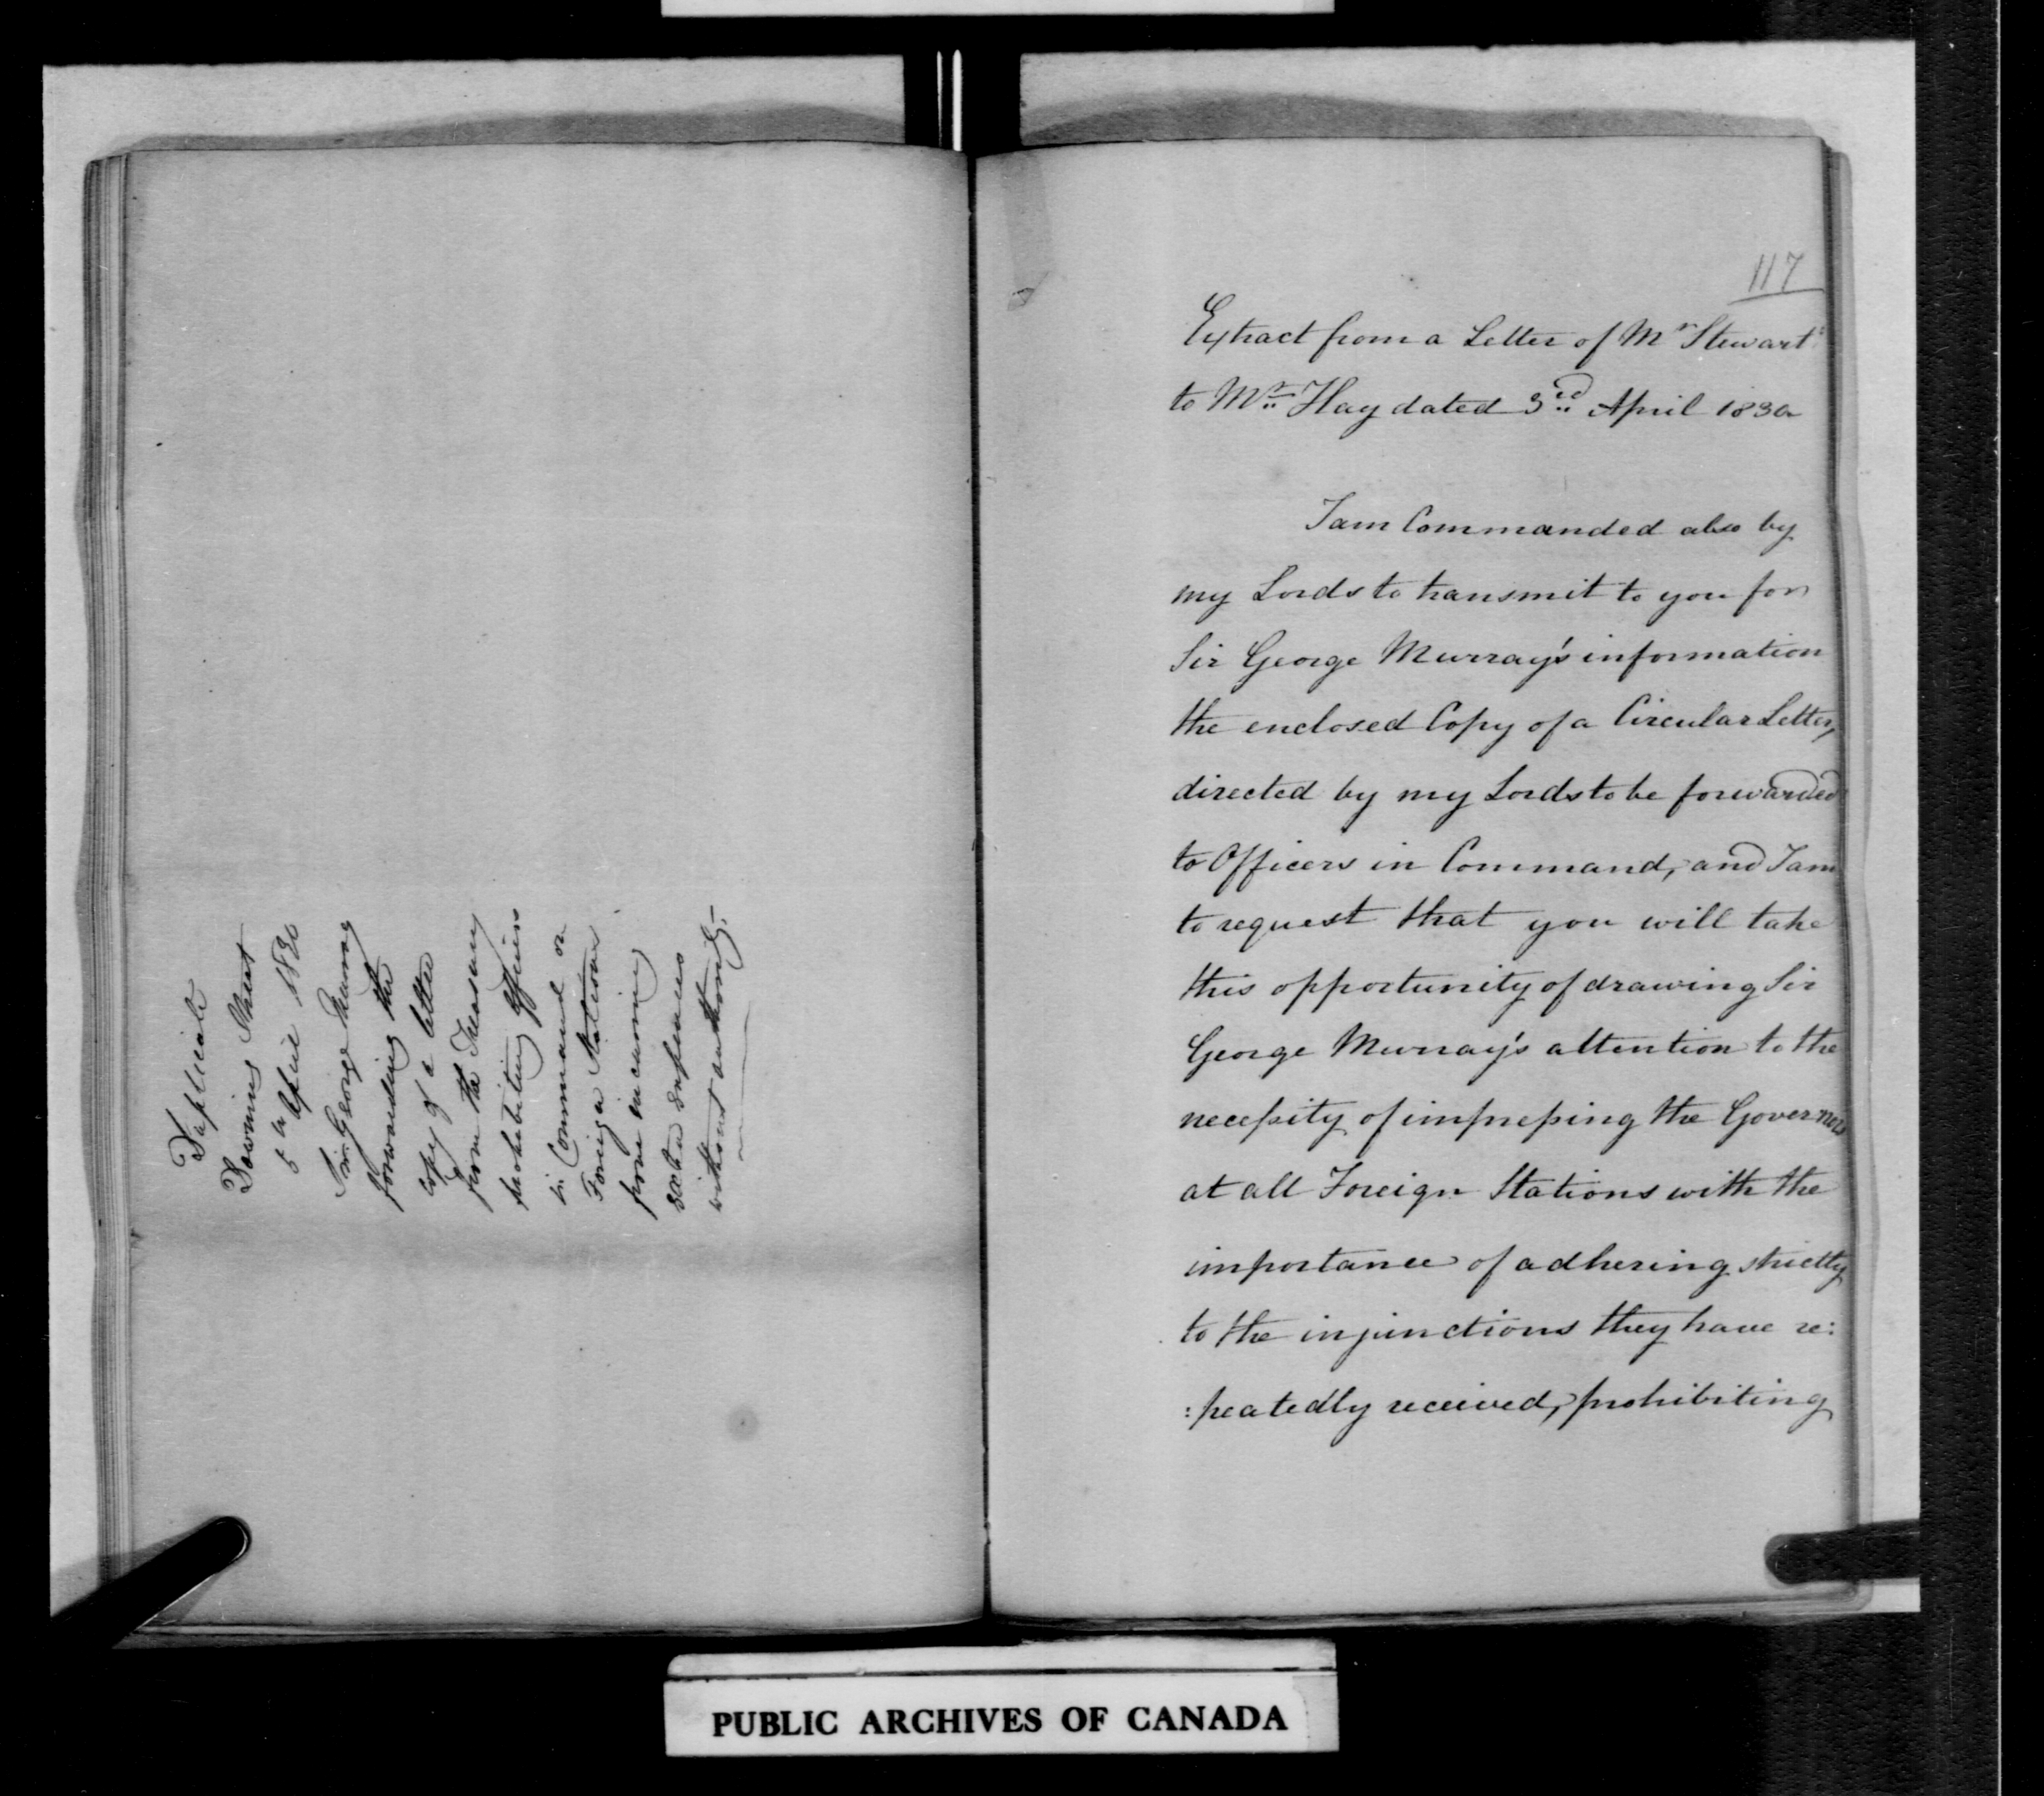 Duplicate
Downing Street
April 1830
Sir George Murray
forwarding the
Copy of a letter
from the Treasury
prohibiting Officers
in Command on
Foreign Stations
from incurring
Extra expences
without authority.-
117
Extract from a Letter of Mr Stewart
to Mr. Hay dated 3rd April 1830
I am Commanded also by
my Lords to transmit to you for
Sir George Murray's information
the enclosed Copy of a Circular Letter,
directed by my Lords to be forwarded
to Officers in Command, and I am
to request that you will take
this opportunity of drawing Sir
George Murray's attention to the
necessity of impressing the Governors
at all Foreign Stations with the
importance of adhering strictly
to the injunctions they have re:
:peatedly received, prohibiting
PUBLIC ARCHIVES OF CANADA